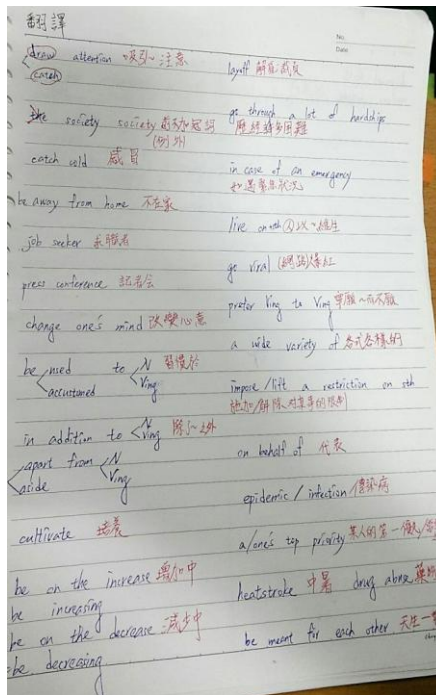 翻譯
No.
Date
draw attention 吸引~注意
catch
the society society 前不加冠詞
(例外)
catch cold 感冒
be away from home 不在家
job seeker 求職者
press conference 記者会
change one's mind 改變心意
be used to N 習慣於
accustomed Ving
in addition to N 除了~之外
Ving
apart from N
aside Ving
cultivate 培養
be on the increase 增加中
be increasing
be on the decrease 減少中
=be decreasing
layoff 解雇
go through a lot of hardships
歷經許多困難
in case of an emergency
如遇緊急狀況
live on sth 以~維生
go viral (網路)爆紅
prefer Ving to Ving 寧願~而不願
a wide variety of 各式各樣的
impose/lift a restriction on sth
施加/解除 对某事的限制
on behalf of 代表
epidemic / infection 傳染病
a/one's top priority 某人的第一優先
heatstroke 中暑 drug abuse 藥
be meant for each other 天生一